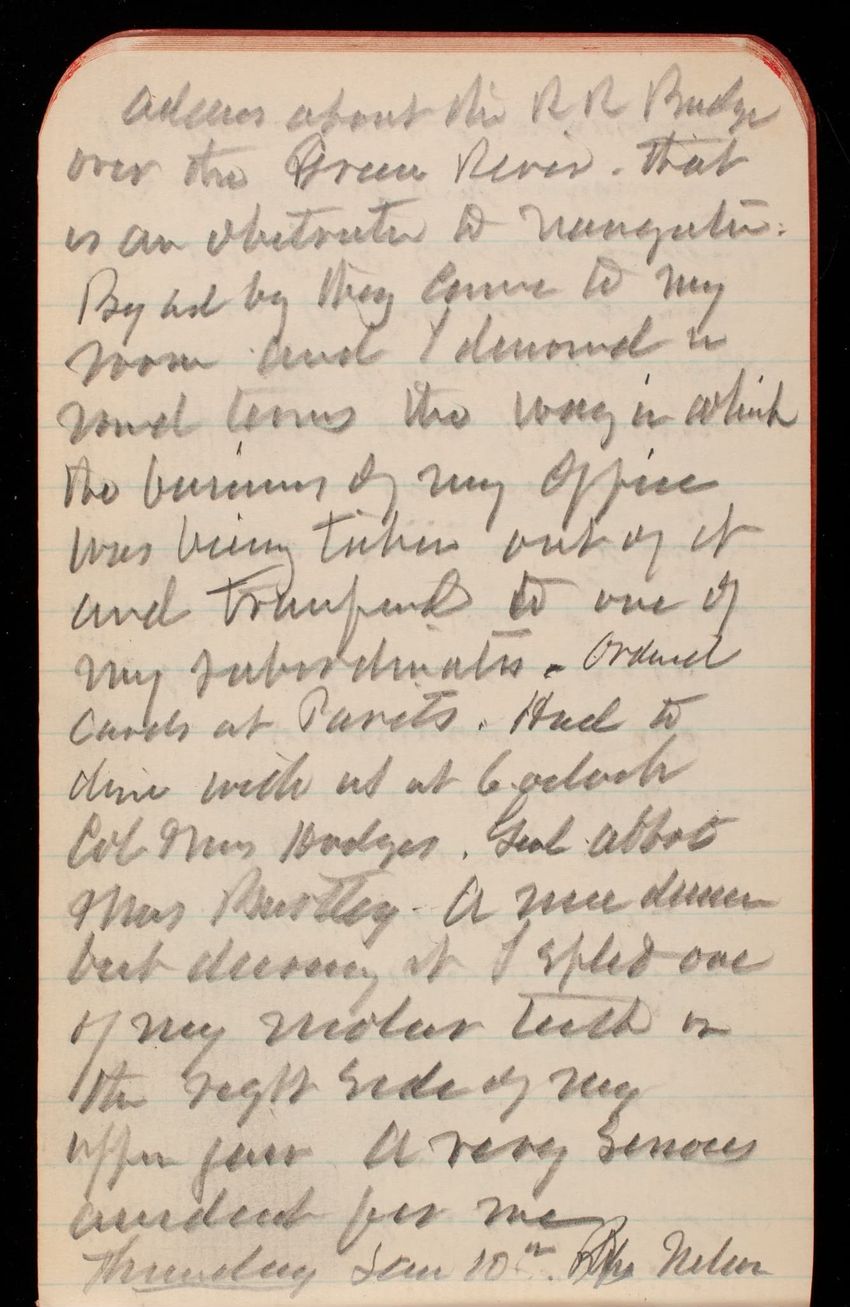 about the R R Bridge
over the Green River. That
is an obstruction to navigation.
By and by they came to my
room and I denounced in
round terms the way in which
the business of my office
was being taken out of it
and transferred to one of
my subordinates. Ordered
cards at Parets. Had to
dine with us at 6 o'clock
Col Mrs Hodges. Genl Abbot
Mrs A nice dinner
but during it I split one
of my molar teeth on
the right side of my
upper jaw A very serious
accident for me
Thursday Jan 10th. Nelson